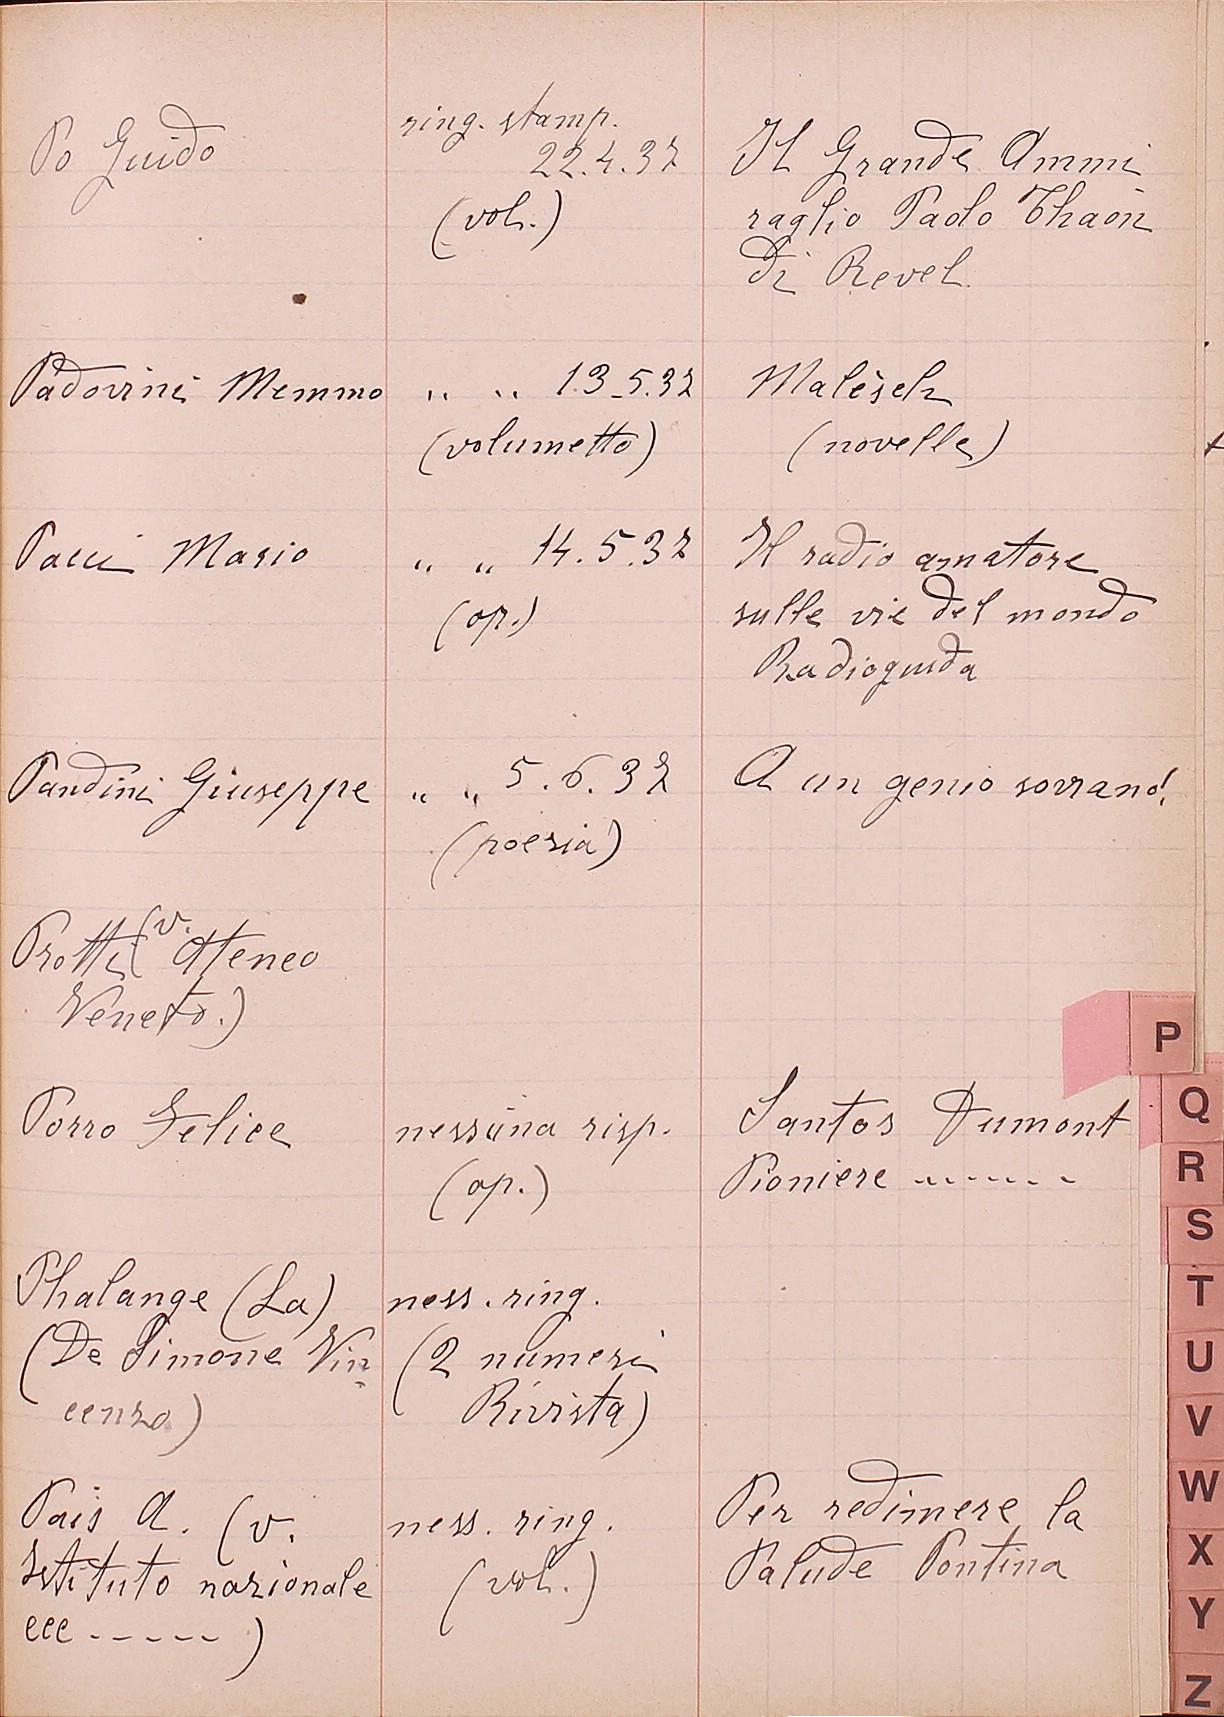 Po Guido
ring. stamp.
22.4.37
(vol.)
Il Grande Ammi
raglio Paolo Thaon
di Revel.
Padovini Memmo
" " 13.5.37
(volumetto)
Malèsch
(novelle)
Pacci Mario
" " 14.5.37
(op.)
Il radio amatore
sulle vie del mondo
Radioguida
Pandini Giuseppe
" " 5.6.37
(poesia)
A un genio sovrano!
Protti (v. Ateneo
Veneto.)
Porro Felice
nessuna risp.
(op.)
Santos Dumont
Pioniere ------
Phalange (La)
(De Simone Vin
cenzo)
ness. ring.
(2 numeri
Rivista)
Pais A. (v.
Istituto nazionale
ecc -----)
ness. ring.
(vol.)
Per redimere la
Palude Pontina
P
Q
R
S
T
U
V
W
X
Y
Z